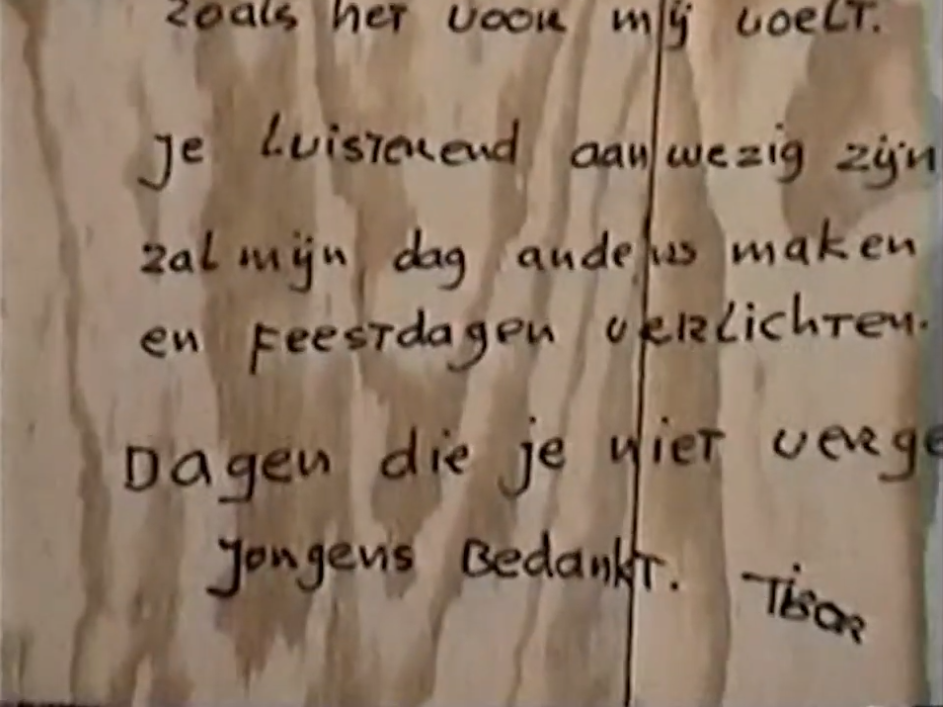 zoals het voor mij voelt.
je luisterend aanwezig zijn
zal mijn dag anders maken
en feestdagen verlichten.
Dagen die je niet verge
Jongens Bedankt. Tibor